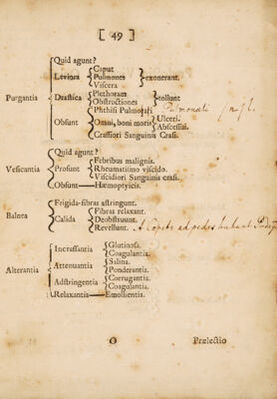 [ 49 ]
Quid agunt?
Caput
Leviora Pulmones exonerant.
Viscera
Purgantia Drastica Plethoram tollunt
Obstructiones
Phthisi Pulmonari
Obsunt Omni, boni moris Ulceri.
Abscessui.
Crassiori Sanguinis Crasi.
Quid agunt?
Febribus malignis.
Vesicantia Prosunt Rheumatismo viscido.
Viscidiori Sanguinis crasi.
Obsunt Hæmoptyicis.
Frigida fibras astringunt.
Balnea Fibras relaxant.
Calida Deobstruunt.
Revellunt. A Capite ad pedes
Incrassantia Glutinosa.
Coagulantia.
Attenuantia Salina.
Alterantia Ponderantia.
Adstringentia Corrugantia.
Coagulantia.
Relaxantia Emollientia.
O Prælectio